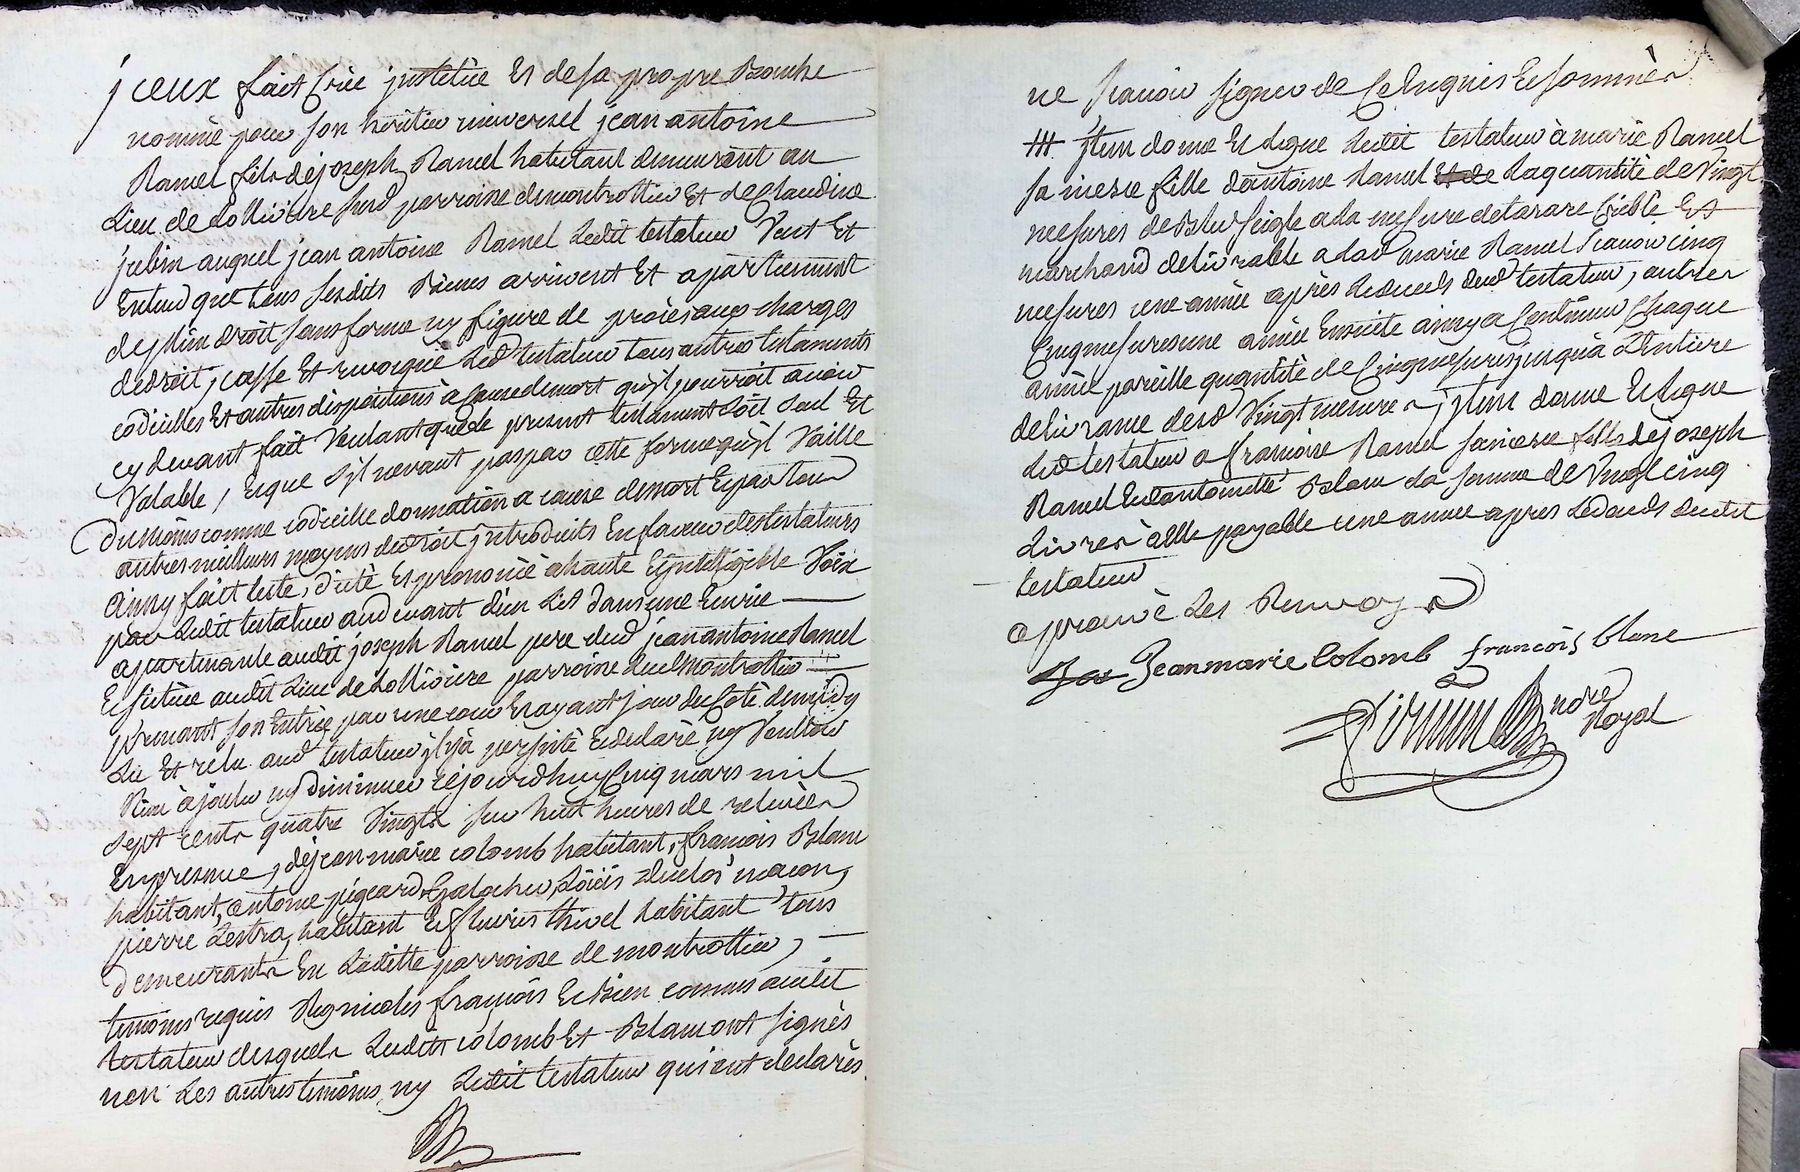 jceux fait Crée jnstitüe Et de sa propre Bouche
nommé pour son héritier universel jean antoine
Ramel fils de joseph Ramel habitant demeurant au
Lieu de Lollivière susd parroisse de montrottier Et de Claudine
jubin auquel jean antoine Ramel Ledit testateur Veut Et
Entend que tous sesdits Biens arrivent Et apartiennent
de plein droit sans forme ny figure de procès aux charges
de droit, casse Et revoque Led testateur tous autres testaments
codicilles Et autres dispositions à cause de mort qu'jl pourroit avoir
cy devant fait Voulant que le present testament soit seul Et
Valable, Et que s'jl ne vaut pas par cette forme qu'jl Vaille
du moins comme codicille donnation a cause de mort Et par tous
autres meilleurs moyens de droit jntroduits En faveur des testateurs
ainsy fait testé, dicté Et prononcé a haute Et jntelligible Voix
par Ledit testateur au devant d'un Lit dans une Ecurie
apartenante audit joseph Ramel pere dud jean antoine Ramel
Et située audit Lieu de Lollivière parroisse dud Montrottier
prenant son Entrée par une cour Et ayant jour du Coté de midy
Lu Et relu aud testateur jl y a persisté Et declaré ny Vouloir
Rien ajouter ny diminuer cejourdhuy Cinq mars mil
sept cents quatre Vingts sur huit heures de relevées
En presence, de jean marie colomb habitant, francois Blanc
habitant, antoine pigeard Galocher, Loüis Duclos macon,
pierre Lestra, habitant Et fleuris thivel habitant tous
demeurants En Laditte parroisse de montrottier,
temoins requis Regnicoles francois Et Bien connus audit
testateur desquels Lesdits colomb Et Blanc ont signés
non Les autres temoins, ny Ledit testateur qui ont declarés
ne scavoir signer de Ce Enquis Et sommés
### jtem donne Et Legue Ledit testateur à marie Ramel
sa niesce fille d'antoine Ramel La quantité de Vingt
mesures de Bled seigle a la mesure de tarare Crible Et
marchand delivrable a lad marie Ramel Scavoir cinq
mesures une année après Le deceds dud testateur, autres
Cinq mesures une année Ensuite ainsy a Continuer Chaque
année pareille quantité de Cinq mesures jusqu'à L'Entiere
delivrance desd Vingt mesures, jtem donne Et Legue
Led testateur a francoise Ramel sa niesce fille de joseph
Ramel Et d'antoinette Blanc La somme de Vingt cinq
Livres à Elle payable une année apres Le deceds dudit
testateur
aprouvé Les Renvoys
Jeanmarie Colomb francois blanc
ndre
Noyel